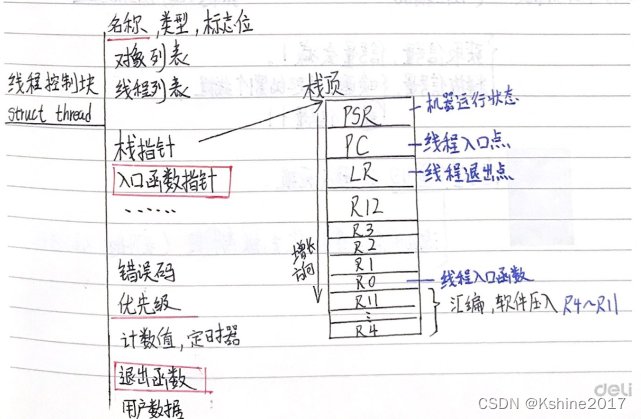 名称,类型,标志位
对象列表
线程控制块
线程列表
struct thread
栈指针
入口函数指针
……
错误码
优先级
计数值,定时器
退出函数
用户数据
栈顶
PSR
机器运行状态
PC
线程入口点
LR
线程退出点
R12
R3
R2
R1
R0
线程入口函数
R11
⋮
R4
增长方向
汇编,软件压入 R4~R11
deli
CSDN @Kshine2017